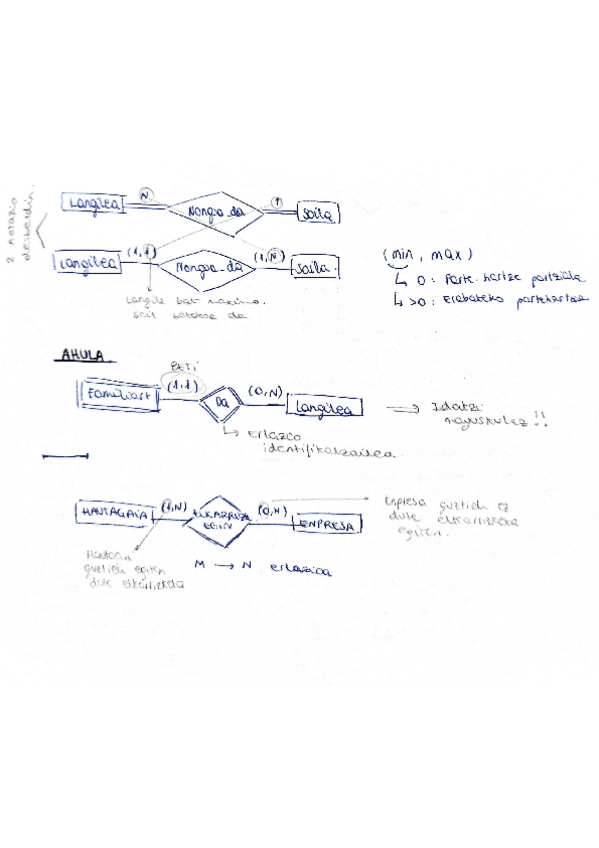 2 notazio
desberdin.
Langilea N Nongoa da 1 Saila
Langilea (1,1) Nongoa da (1,N) Saila.
Langile bat maximo.
sail batekoa da
(min, max)
↳ 0: Parte hartze partziala
↳ >0: Erabateko partehartzea
AHULA
BETI
Familiart (1,1) Da (0,N) Langilea → Idatzi
mayuskulez!!
↳ erlazio
identifikatzailea.
HAUTAGAIA (1,N) ELKARRIZK. EGIN (0,N) ENPRESA
Enpresa guztiek ez
dute elkarrizketa
egiten.
guztiek egiten
dute elkarrizketa
M → N erlazioa